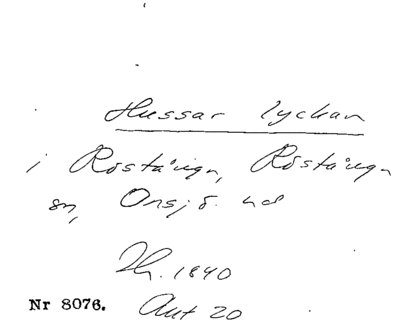 Hussar lyckan
i Röstånga, Röstånga
sn, Onsjö hd
Lh. 1840
Nr 8076. Akt 20